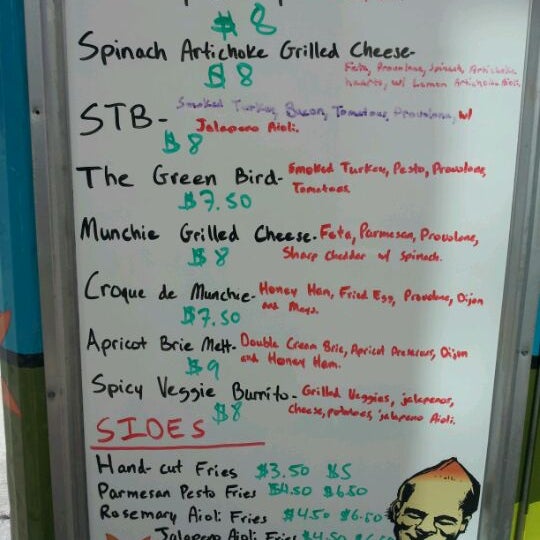 $8
Spinach Artichoke Grilled Cheese-
$8 Feta, Provolone, Spinach, Artichoke
hearts, w/ Lemon Artichoke Aioli.
STB- Smoked Turkey, Bacon, Tomatoes, Provolone, w/
Jalapeno Aioli.
$8
The Green Bird- Smoked Turkey, Pesto, Provolone,
Tomatoes.
$7.50
Munchie Grilled Cheese- Feta, Parmesan, Provolone,
$8 Sharp Cheddar w/ Spinach.
Croque de Munchie- Honey Ham, Fried Egg, Provolone, Dijon
$7.50 and Mayo.
Apricot Brie Melt- Double Cream Brie, Apricot Preserves, Dijon
$9 and Honey Ham.
Spicy Veggie Burrito- Grilled Veggies, jalapenos,
$8 cheese, potatoes, jalapeno Aioli.
SIDES
Hand-cut Fries $3.50 $5
Parmesan Pesto Fries $4.50 $6.50
Rosemary Aioli Fries $4.50 $6.50
Jalapeno Aioli Fries $4.50